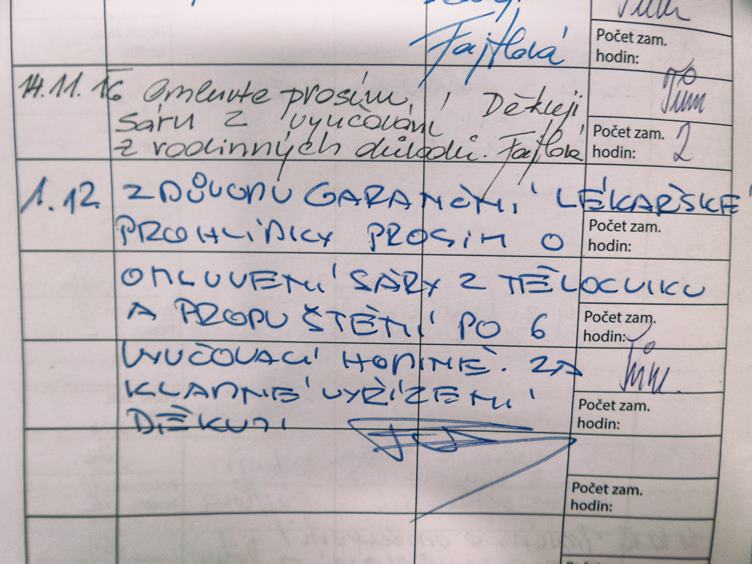 Fajtlová
Počet zam.
hodin:
14.11.16 Omluvte prosím, Děkuji
Sáru z vyučování
z rodinných důvodů. Fajtlová
Počet zam.
hodin: 2
1.12 Z DŮVODU GARANČNÍ LÉKAŘSKÉ
PROHLÍDKY PROSÍM O
Počet zam.
hodin:
OMLUVENÍ SÁRY Z TĚLOCVIKU
A PROPUŠTĚNÍ PO 6
Počet zam.
hodin:
VYUČOVACÍ HODINĚ. ZA
KLADNÉ VYŘÍZENÍ
DĚKUJI
Počet zam.
hodin:
Počet zam.
hodin:
Počet zam.